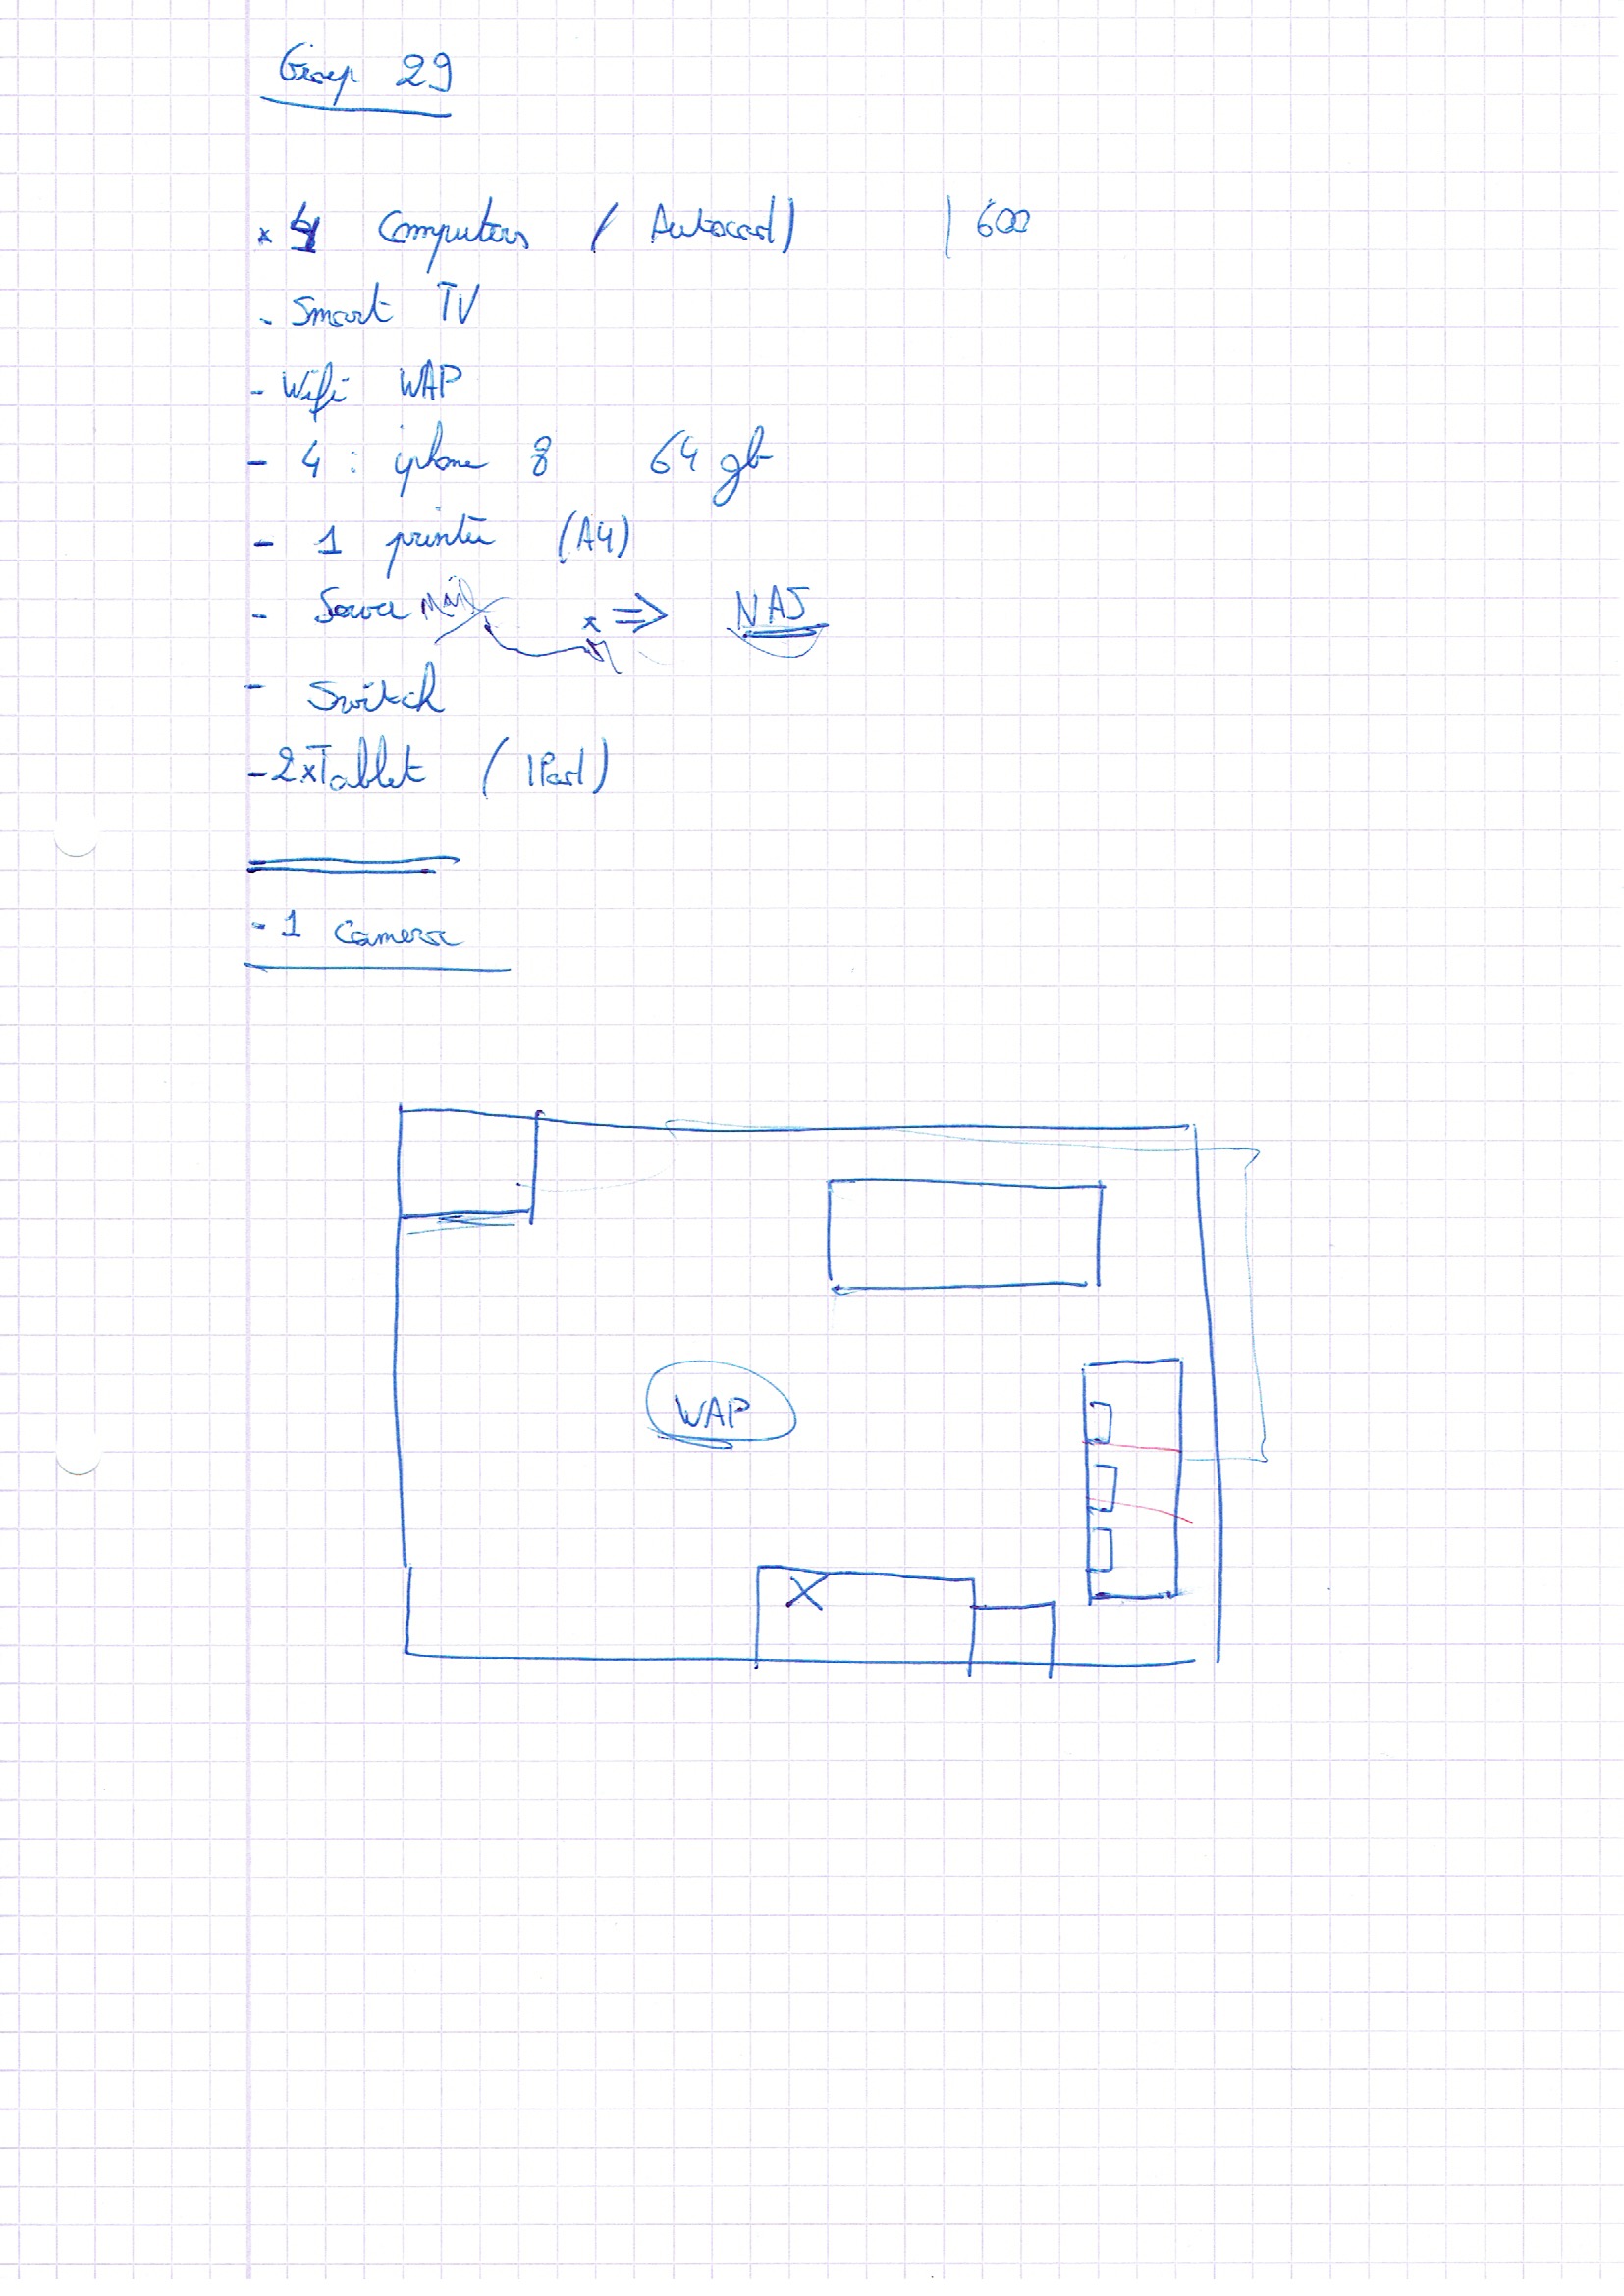 Groep 29
x 4 Computers ( Autocad) | 600
- Smart TV
- Wifi WAP
- 4 : iphone 8 64 gb
- 1 printer (A4)
- Server Mail x => NAS
- Switch
- 2xTablet ( IPad)
- 1 Camera
WAP
X